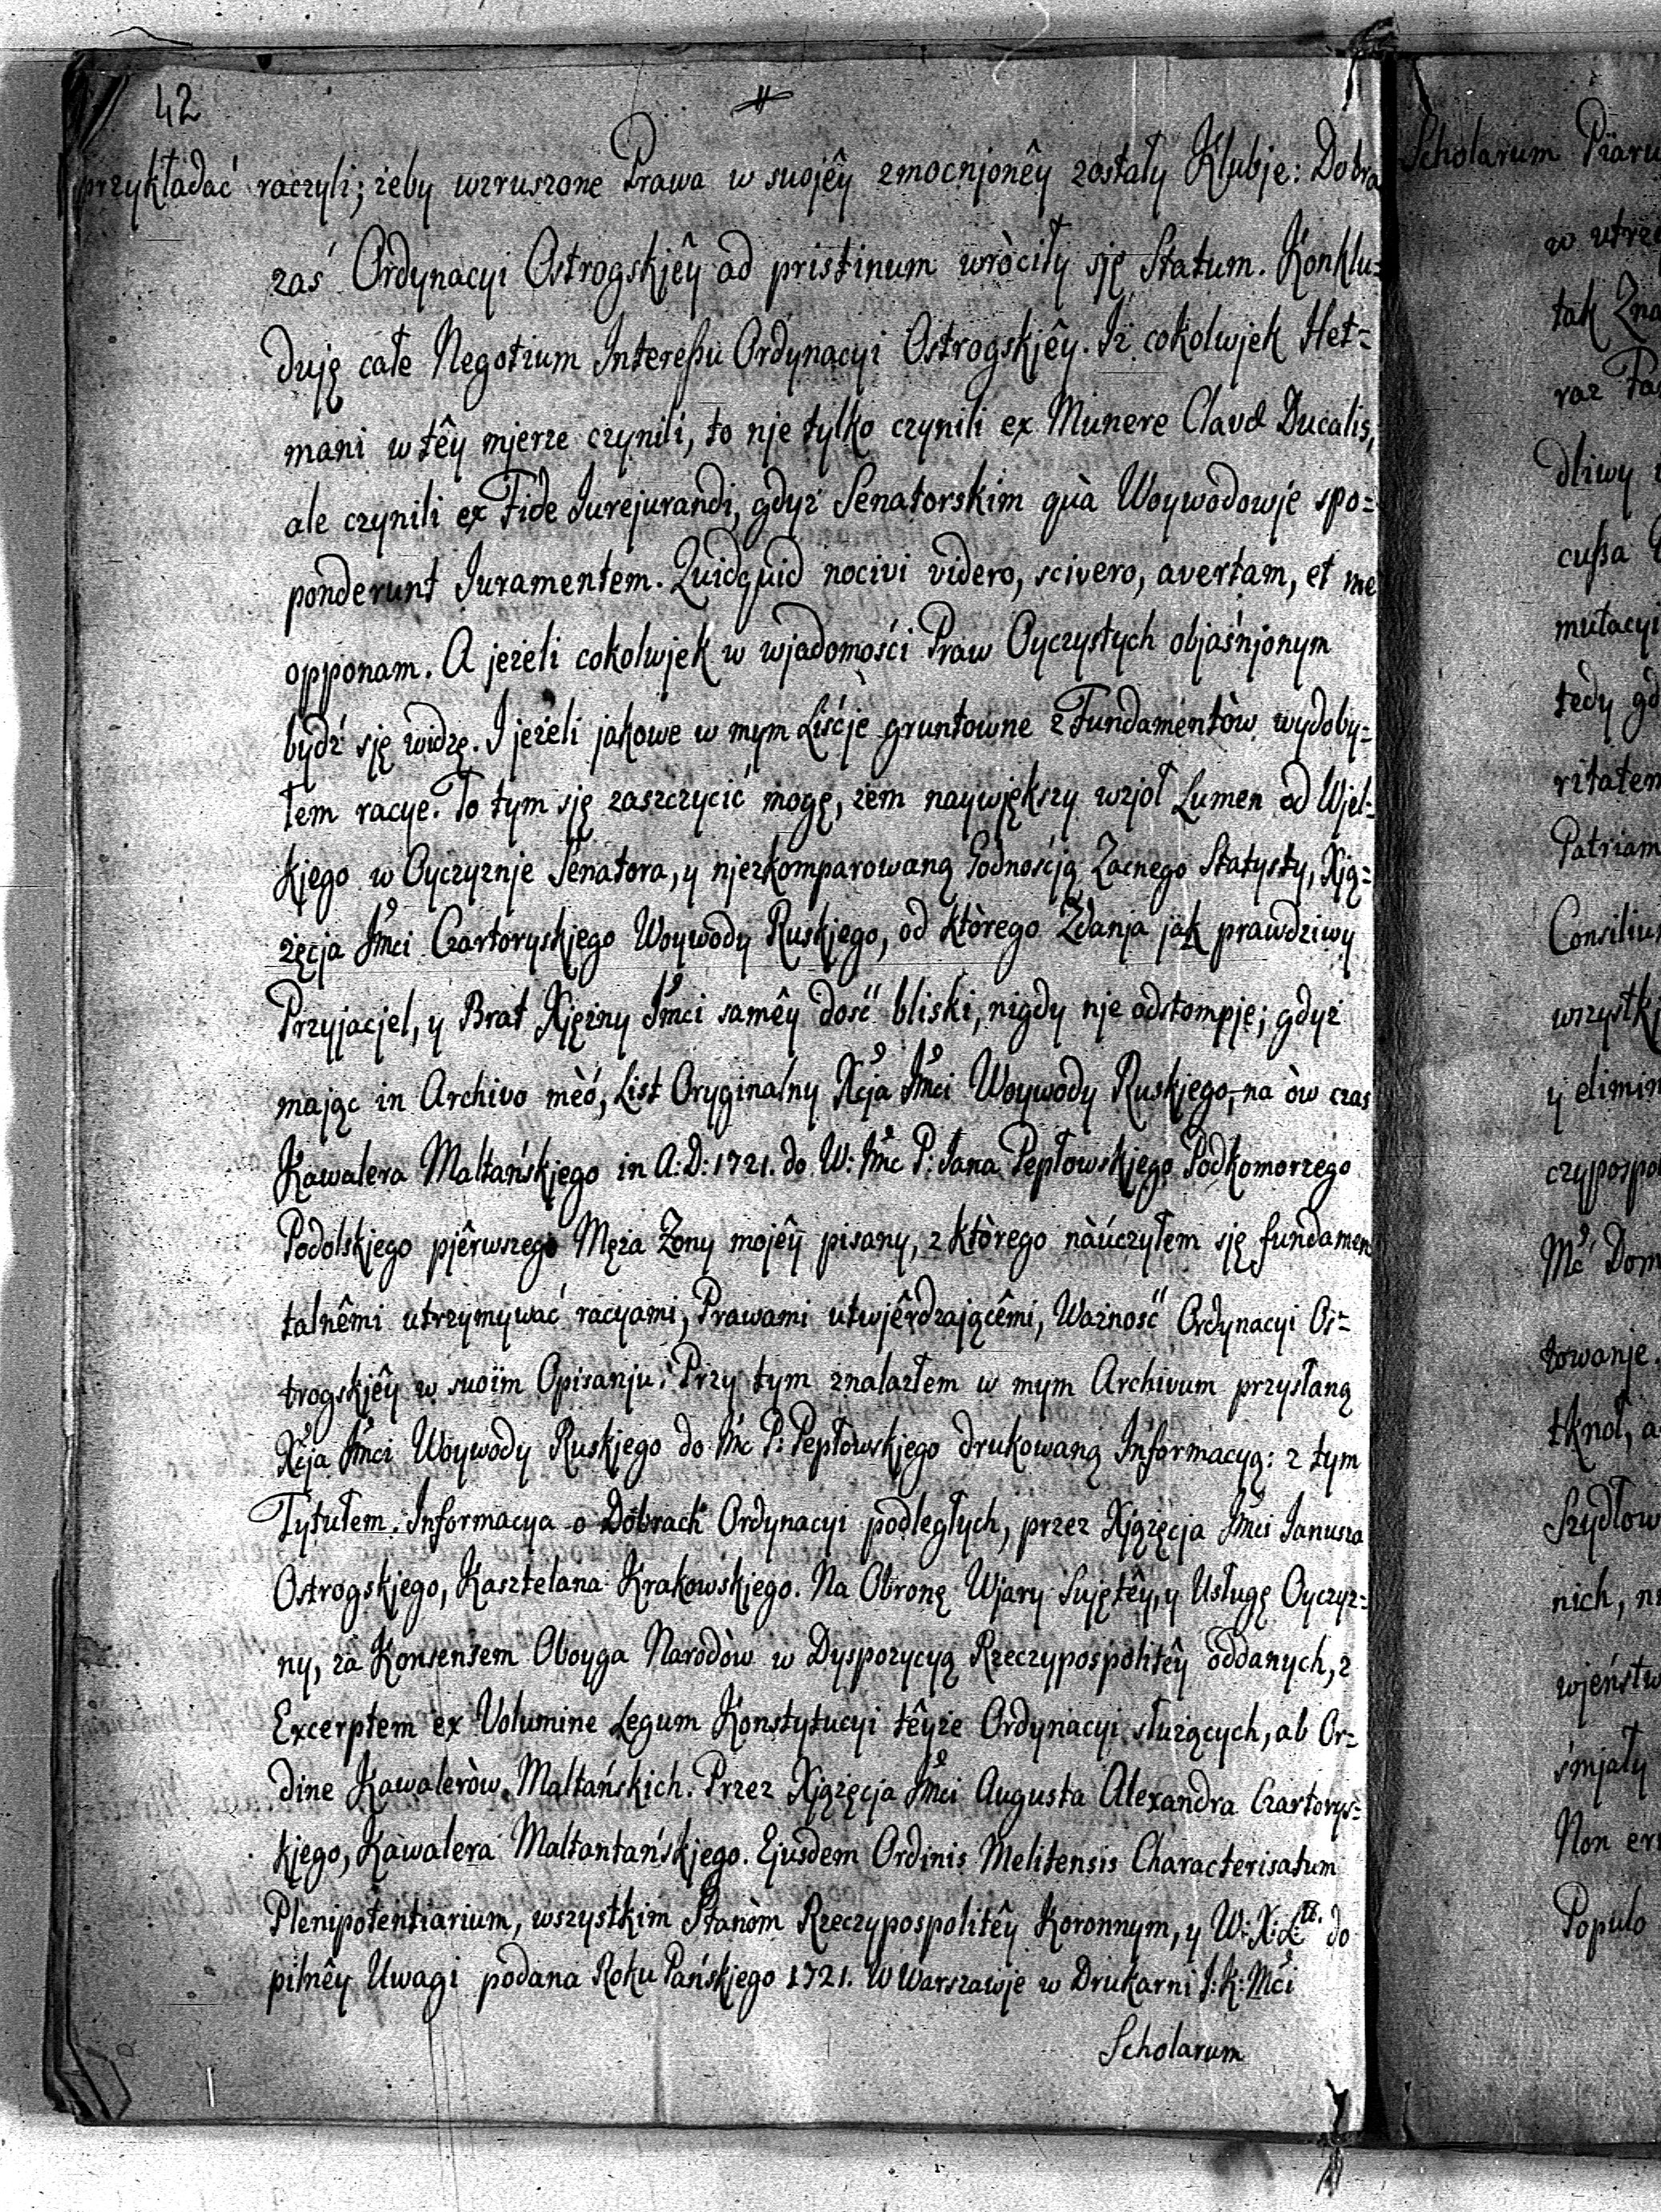 42
przykładać raczyli; żeby wzruszone Prawa w suojêy zmocnjonêy zostały Klubje: Dobra
zaś Ordynacyi Ostrogskjêy ad pristinum wròciły sję Statum. Konklu=
duję całe Negotium Interessu Ordynacyi Ostrogskjêy. Iż cokolwjek Het=
mani w têy mjerze czynili, to nje tylko czynili ex Munere Clavæ Ducalis,
ale czynili ex Fide Iurejurandi, gdyż Senatorskim quà Woywodowje spo=
ponderunt Iuramentem. Quidquid nocivi videro, scivero, avertam, et me
opponam. A jeżeli cokolwjek w wjadomości Praw Oyczystych objaśnjonym
bydź sję widzę. I jeżeli jakowe w mym Liścje gruntowne z Fundamentòw wydoby=
łem racye. To tym sję zaszczycić mogę, żem naywjększy wzjoł Lumen od Wjel=
kjego w Oyczyznje Senatora, y njezkomparowaną Godnoścją Zacnego Statysty, Xją=
żęcja Jmci Czartoryskjego Woywody Ruskjego, od ktòrego Zdanja jak prawdziwy
Przyjacjel, y Brat Xjężny Jmci samêy dość bliski, nigdy nje odstompję; gdyż
mając in Archivo mèó, List Oryginalny Xcja Jmci Woywody Ruskjego, na òw czas
Kawalera Maltańskjego in A: D: 1721. do W: Jmc P: Jana Pepłowskjego Podkomorzego
Podolskjego pjêrwszego Męża Żony mojêy pisany, z ktòrego nàúczyłem sję fundamen
talnêmi utrzymywać racyami, Prawami utwjêrdzającêmi, Ważność Ordynacyi Os=
trogskjêy w suoïm Opisanju. Przy tym znalazłem w mym Archivum przysłaną
Xcja Jmci Woywody Ruskjego do Jmc P: Pepłowskjego drukowaną Informacyą: z tym
Tytułem. Informacya o Dobrach Ordynacyi podległych, przez Xjążęcja Jmci Ianusza
Ostrogskjego, Kasztelana Krakowskjego. Na Obronę Wjary Sujętêy, y Usługę Oyczyz=
ny, zà Konsensem Oboyga Narodòw w Dyspozycyą Rzeczypospolitêy oddanych, z
Excerptem ex Volumine Legum Konstytucyi têyże Ordynacyi służących, ab Or=
dine Kawaleròw Maltańskich. Przez Xjążęcja Jmci Augusta Alexandra Czartorys=
kjego, Kawalera Maltantańskjego. Ejusdem Ordinis Melitensis Characterisatum
Plenipotentiarium, wszystkim Stanòm Rzeczypospolitêy Koronnym, y W: X: L: do
pilnêy Uwagi podana Roku Pańskjego 1721. W Warszawje w Drukarni J: K: Mci
Scholarum
Scholarum Piaru
w utrzy
tak Zna
raz
dliwy
cussa
mutacyi
tedy gd
ritatem
Patriam
Consiliu
wszystkj
y elimin
czypospol
Mć Dom
towanje.
tknoł, a
Szydłow
nich, n
wjeństw
śmjały
Non er
Populo